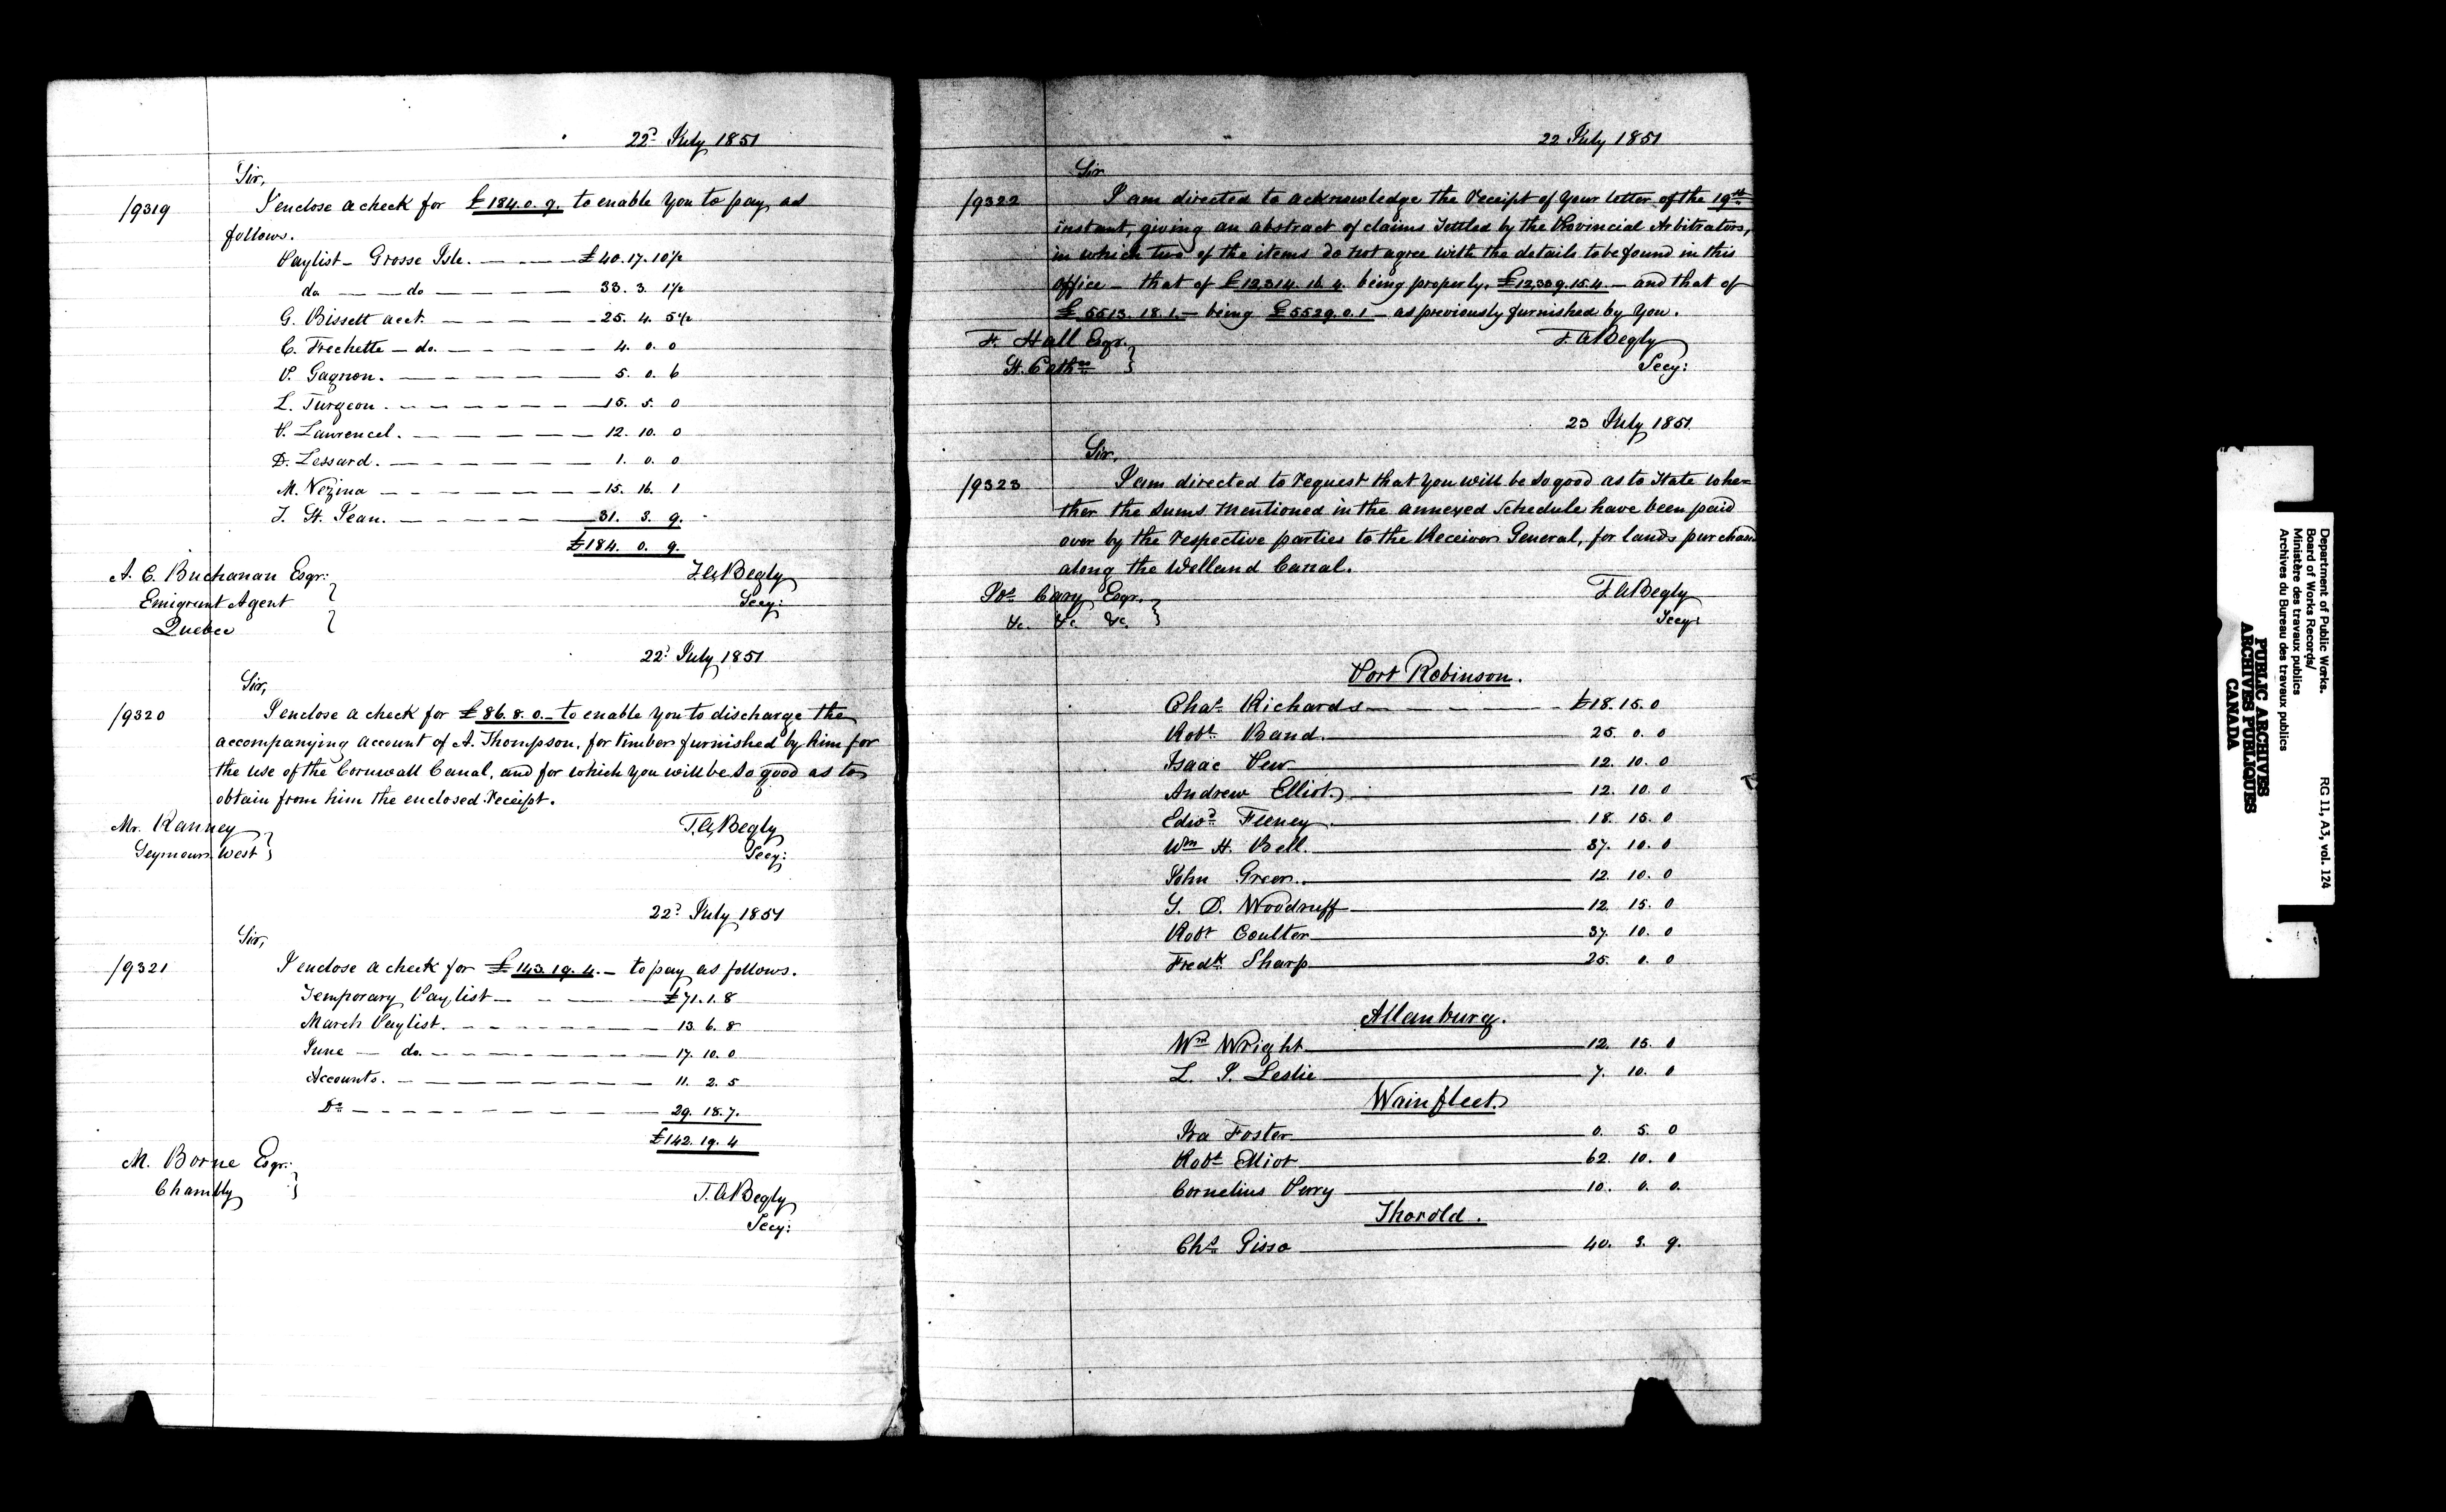 22d July 1851
Sir,
19319 I enclose a check for £184. 0. 9. to enable you to pay, as
follows.
Paylist - Grosse Isle. £40. 17. 10½
do do 33. 3. 1½
G. Bissett acct. 25. 4. 5½
C. Frechette - do. 4. 0. 0
P. Gagnon. 5. 0. 6
L. Turgeon. 15. 5. 0
P. Laurencel. 12. 10. 0
D. Lessard. 1. 0. 0
M. Vezina 15. 16. 1
J. St. Jean. 31. 3. 9.
£184. 0. 9.
A. C. Buchanan Esqr: T. A. Begly
Emigrant Agent Secy:
Quebec
22d July 1851
Sir,
19320 I enclose a check for £86. 8. 0. to enable you to discharge the
accompanying account of A. Thompson, for timber furnished by him for
the use of the Cornwall Canal, and for which you will be so good as to
obtain from him the enclosed receipt.
Mr. Ranney T. A. Begly
Seymour West Secy:
22d July 1851
Sir,
19321 I enclose a check for £143. 19. 4. - to pay as follows.
Temporary Paylist £71. 1. 8
March Paylist. 13. 6. 8
June do. 17. 10. 0
Accounts. 11. 2. 5
Do 29. 18. 7.
£142. 19. 4
M. Borne Esqr:
Chambly T. A. Begly
Secy:
22 July 1851
Sir
19322 I am directed to acknowledge the receipt of your letter of the 19th
instant, giving an abstract of claims settled by the Provincial Arbitrators,
in which two of the items do not agree with the details to be found in this
office - that of £12,314. 16. 4. being properly, £12,339. 15. 4. - and that of
£5513. 18. 1. - being £5529. 0. 1 - as previously furnished by you.
F. Hall Esqr. T. A. Begly
St. Caths Secy:
23 July 1851
Sir,
19323 I am directed to request that you will be so good as to State whe=
ther the sums mentioned in the annexed Schedule have been paid
over by the respective parties to the Receiver General, for lands purchased
along the Welland Canal.
Jos. Cary Esqr. T. A. Begly
&c. &c. &c. Secy:
Port Robinson.
Chas. Richards £18. 15. 0
Robt. Band. 25. 0. 0
Isaac Pew 12. 10. 0
Andrew Elliot 12. 10. 0
Edwd. Feeney 18. 15. 0
Wm. H. Bell. 37. 10. 0
John Green. 12. 10. 0
S. D. Woodruff 12. 15. 0
Robt Coulter 37. 10. 0
Fredk. Sharp 25. 0. 0
Allanburg.
Wm Wright 12. 15. 0
L. J. Leslie 7. 10. 0
Wainfleet.
Ira Foster 0. 5. 0
Robt. Elliot 62. 10. 0
Cornelius Perry 10. 0. 0.
Thorold.
Chs. Pisso 40. 3. 9.
Department of Public Works.
Board of Works Records/
Ministère des travaux publics
Archives du Bureau des travaux publics
RG 11, A3, vol. 124
PUBLIC ARCHIVES
ARCHIVES PUBLIQUES
CANADA